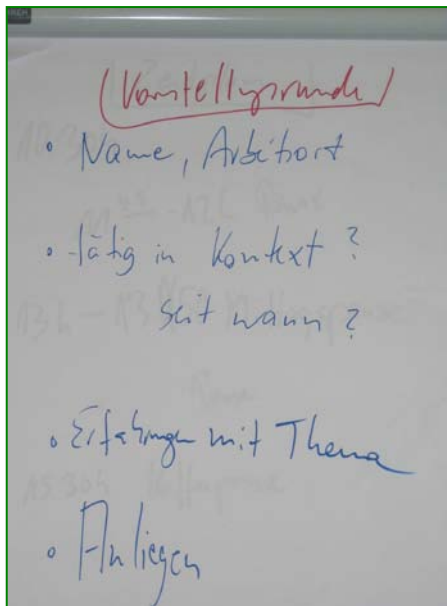 (Vorstellungsrunde)
• Name, Arbeitsort
• tätig in Kontext?
seit wann?
• Erfahrungen mit Thema
• Anliegen